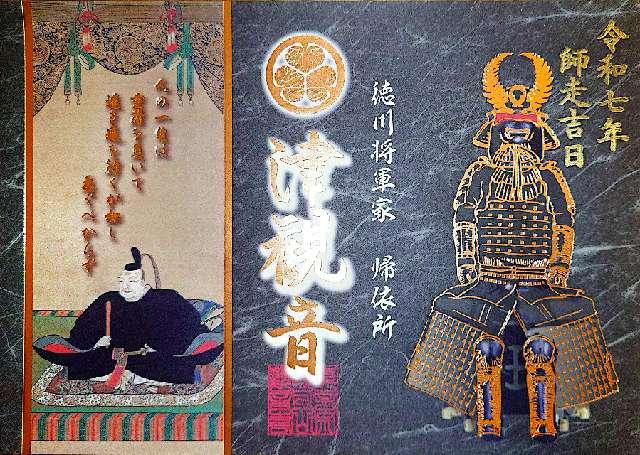 令和七年
師走吉日
徳川将軍家 帰依所
津観音
人の一生は
重荷を負いて
遠き道を行くが如し
急ぐべからず